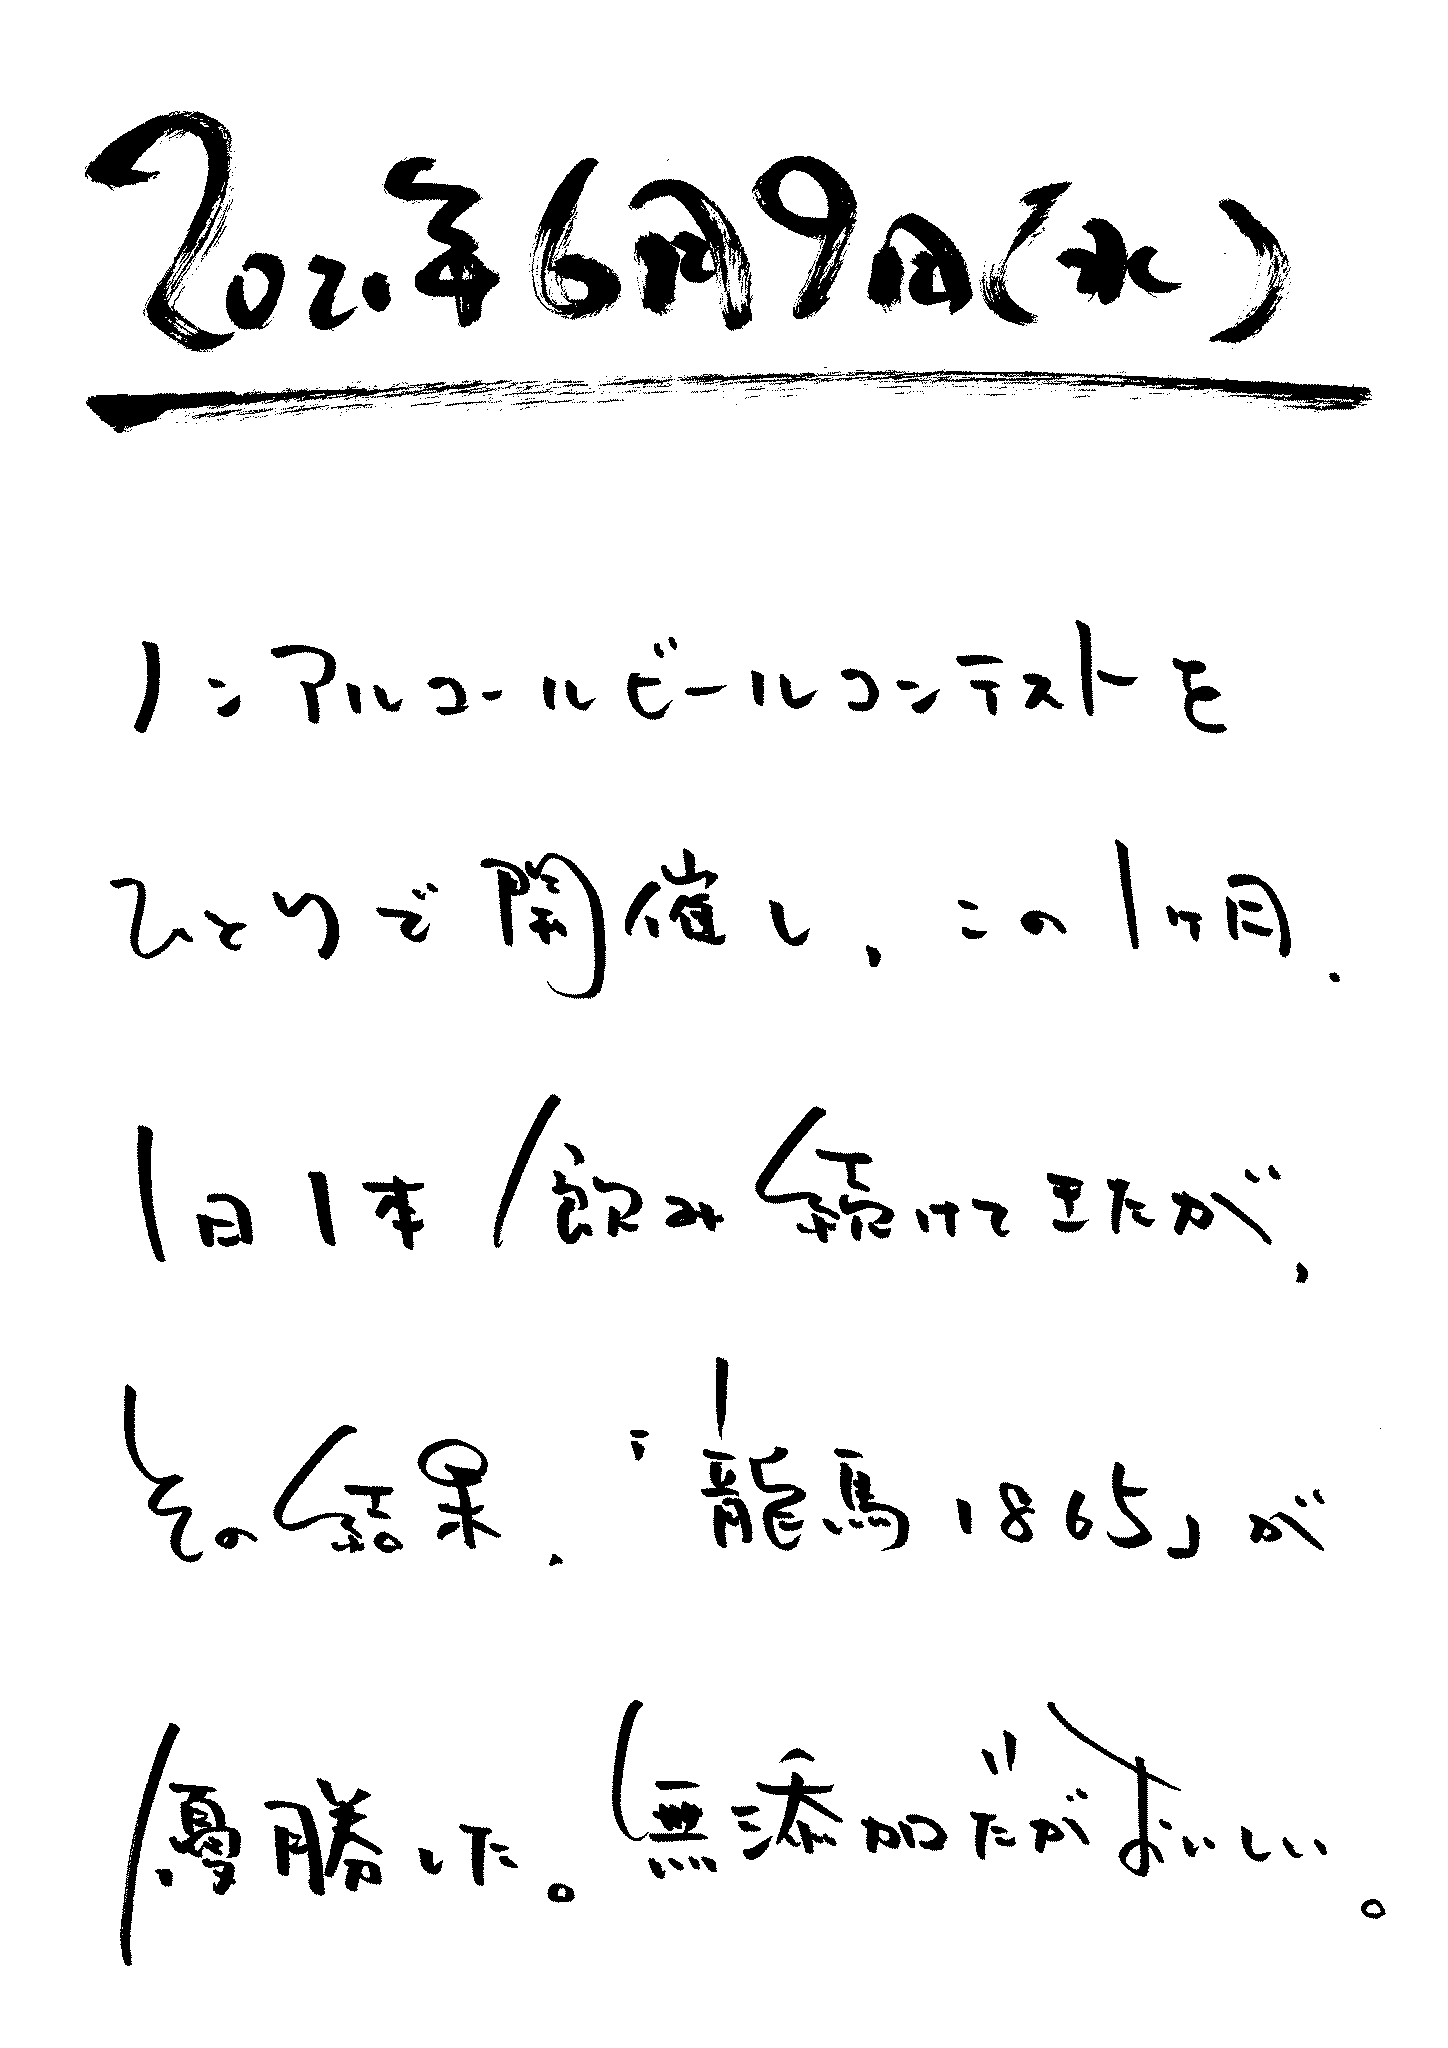 2021年6月9日(水)
ノンアルコールビールコンテストを
ひとりで開催し、この1ヶ月、
1日1本飲み続けてきたが、
その結果、「龍馬1865」が
優勝した。無添加だがおいしい。